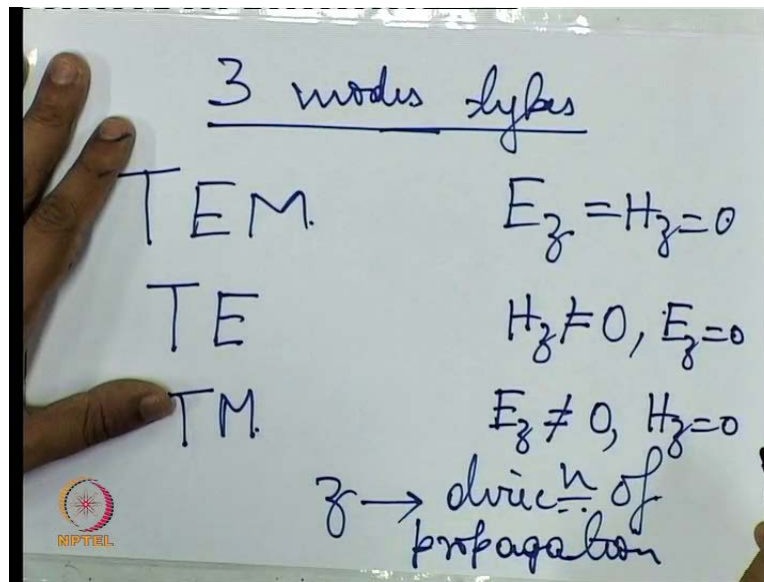 3 modes types
TEM. E_z = H_z = 0
TE H_z ≠ 0, E_z = 0
TM. E_z ≠ 0, H_z = 0
z → direcn of
propagation
NPTEL